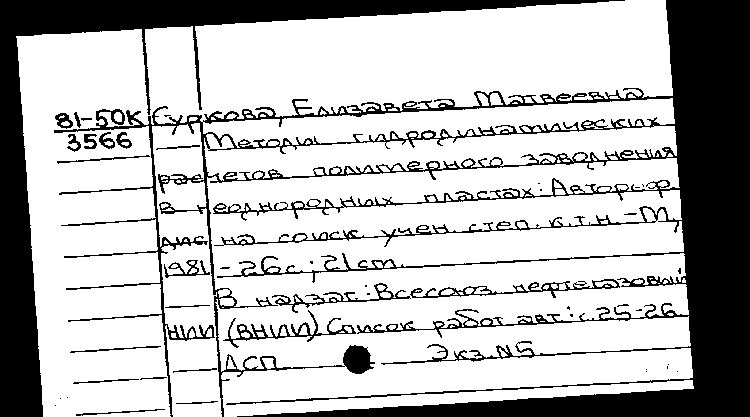 81-50К Суркова, Елизавета Матвеевна
3566 Методы гидродинамических
расчетов полимерного заводнения
в неоднородных пластах: Автореф.
дис. на соиск. учен. степ. к.т.н. - М.,
1981. - 26 с.; 21 cm.
В надзаг.: Всесоюз. нефтегазовый
НИИ (ВНИИ) Список работ авт.: с. 25-26
ДСП Экз. N5